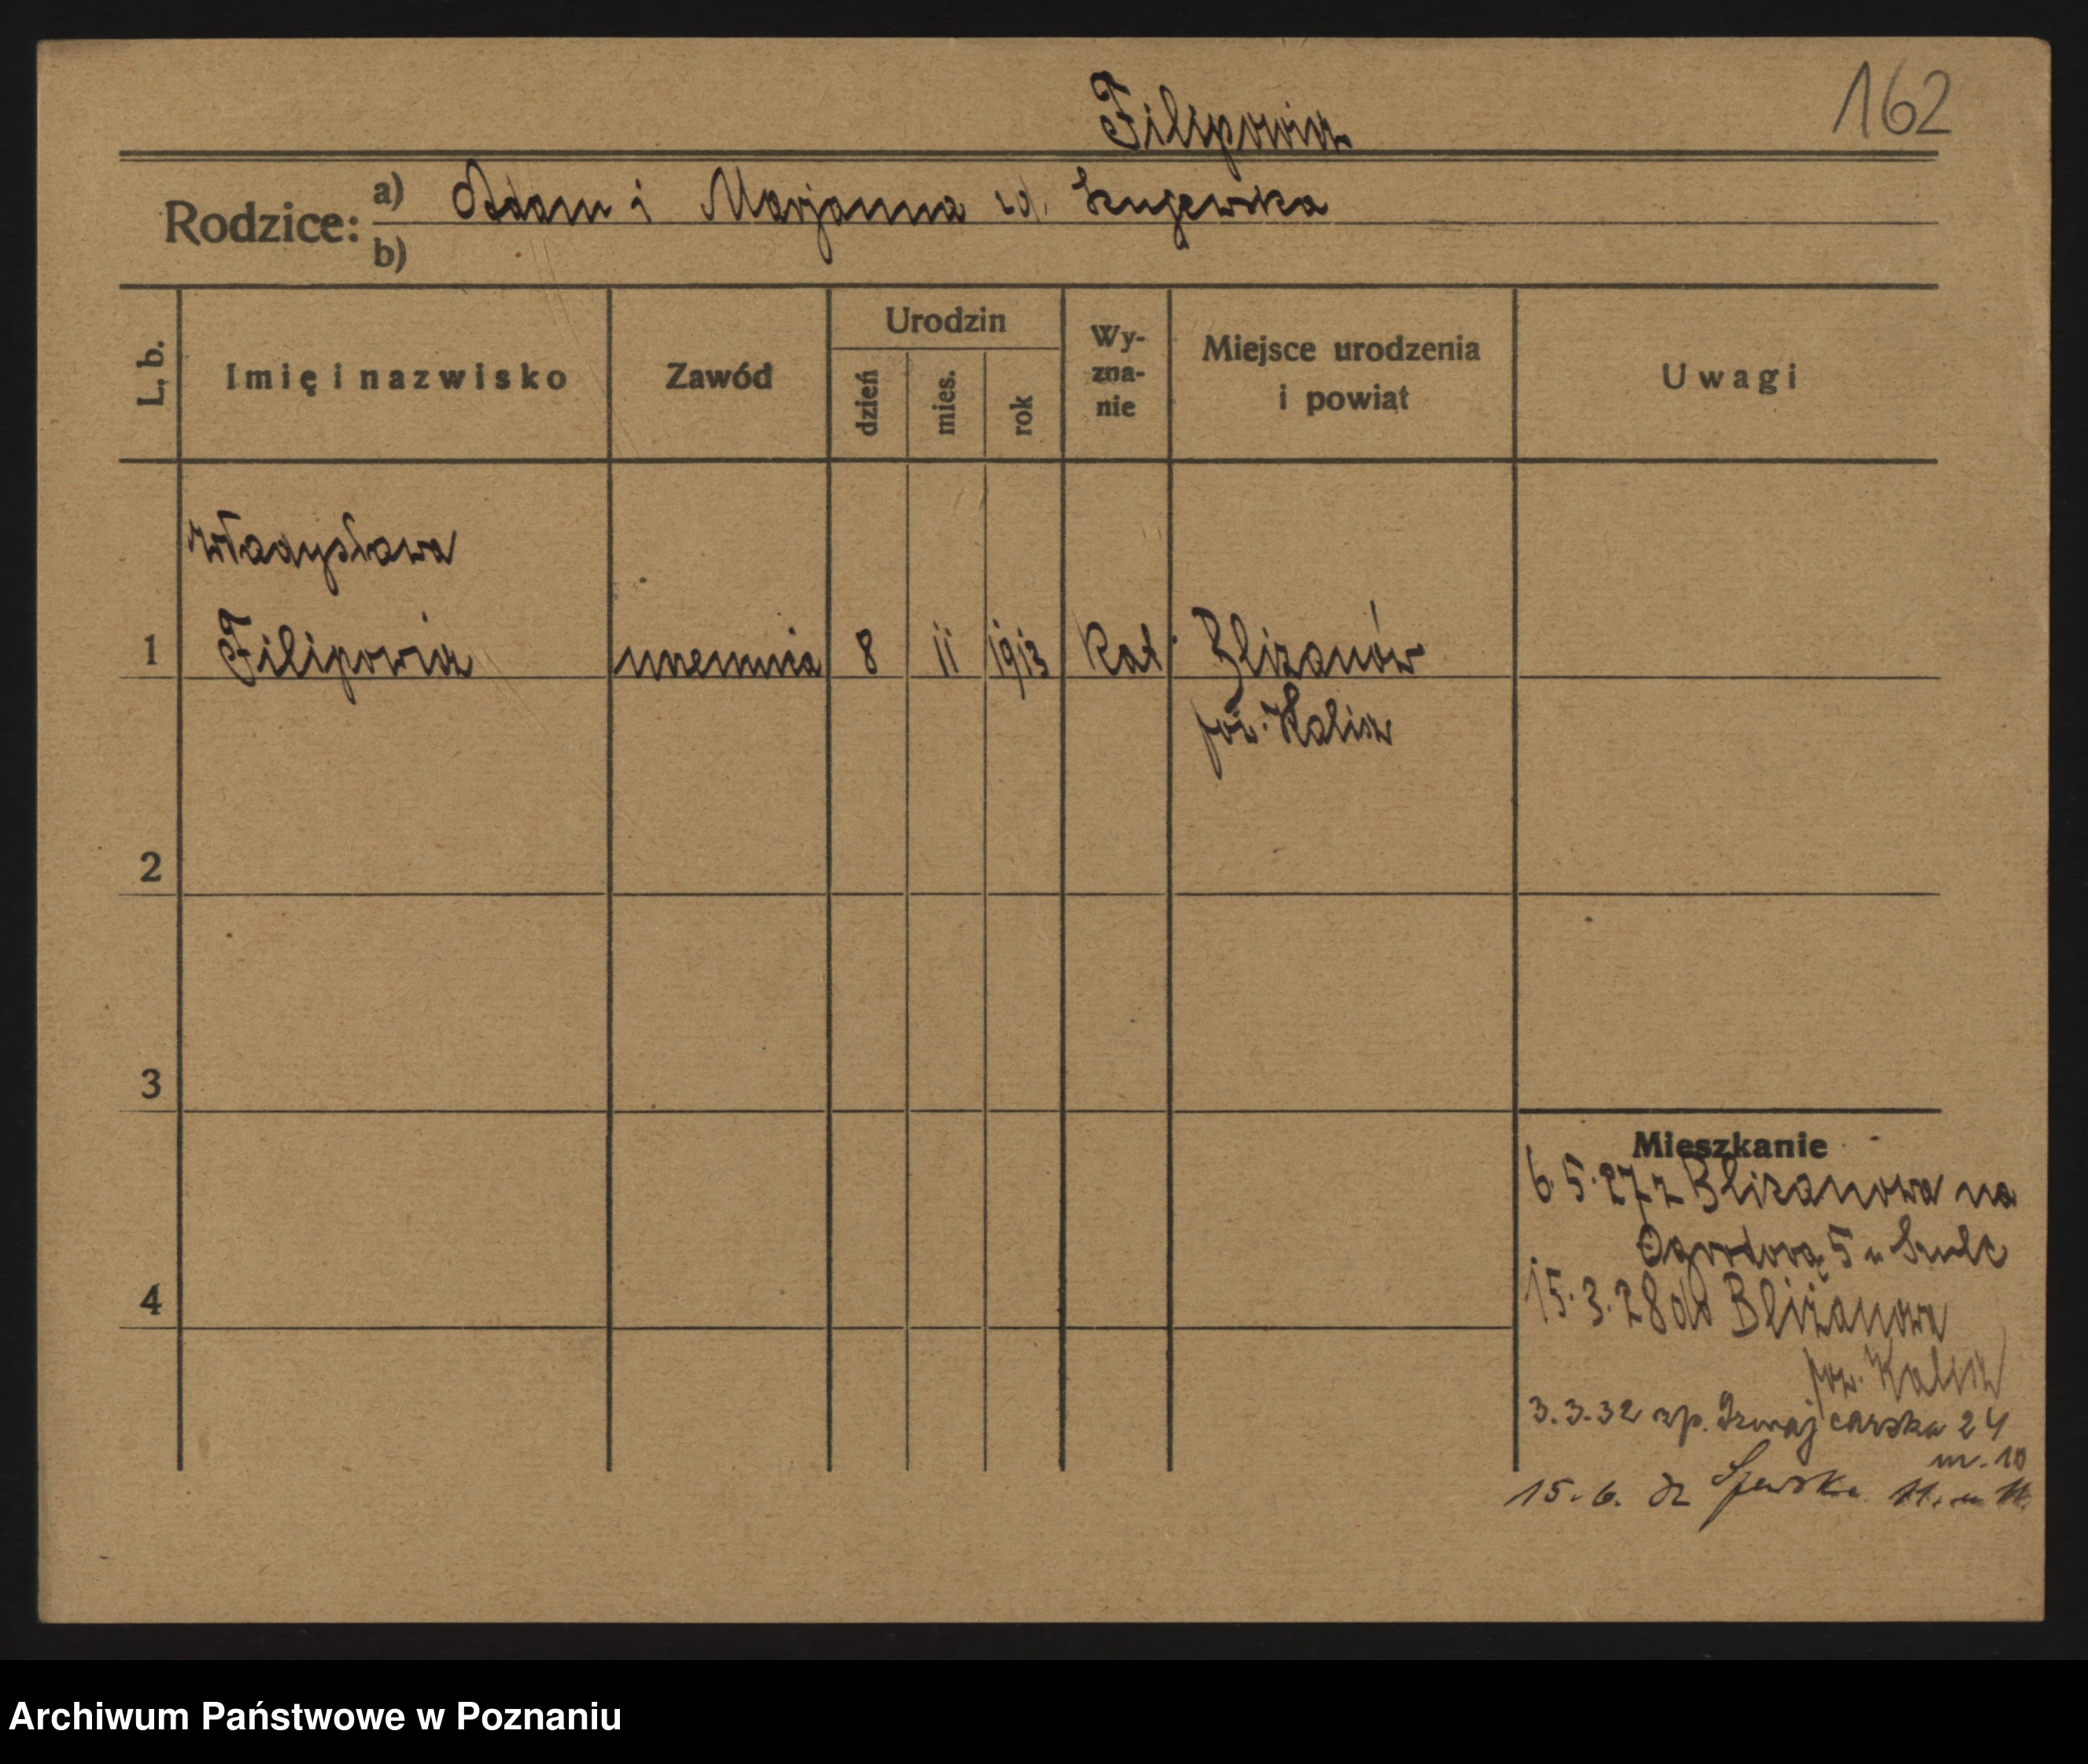 162
Filipowicz
Rodzice: a) Adam i Marjanna zd. Szujewska
b)
L. b. Imię i nazwisko Zawód Urodzin dzień mies. rok Wy-zna-nie Miejsce urodzenia i powiat Uwagi
Władysława
1 Filipowicz uczennica 8 11 1913 Kat. Blizanów
pow. Kalisz
2
3
Mieszkanie
6.5.27 z Blizanowa na
Ogrodową 5 u Szulc
4
15.3.28 do Bliżanowa
pow. Kalisz
3.3.32 sp. 24
m. 10
15.6. 11. m 11.
Archiwum Państwowe w Poznaniu